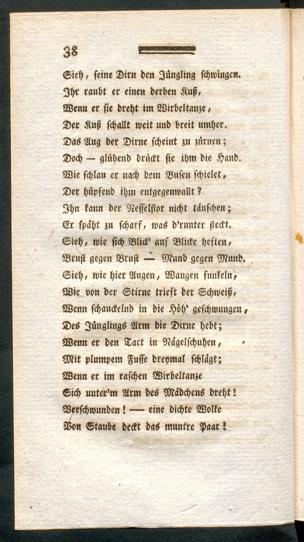 38
Sieh, seine Dirn den Jüngling schwingen.
Ihr raubt er einen derben Kuß,
Wenn er sie dreht im Wirbeltanze,
Der Kuß schallt weit und breit umher.
Das Aug der Dirne scheint zu zürnen;
Doch — glühend drückt sie ihm die Hand.
Wie schlau er nach dem Busen schielet,
Der hüpfend ihm entgegenwallt?
Ihn kann der Nesselflor nicht täuschen;
Er späht zu scharf, was d'runter steckt.
Sieh, wie sich Blick' auf Blicke heften,
Brust gegen Brust — Mund gegen Mund.
Sieh, wie hier Augen, Wangen funkeln,
Wie von der Stirne trieft der Schweiß,
Wenn schauckelnd in die Höh' geschwungen,
Des Jünglings Arm die Dirne hebt;
Wenn er den Tact in Nägelschuhen,
Mit plumpem Fusse dreymal schlägt;
Wenn er im raschen Wirbeltanze
Sich unter'm Arm des Mädchens dreht!
Verschwunden! — eine dichte Wolke
Von Staube deckt das muntre Paar!